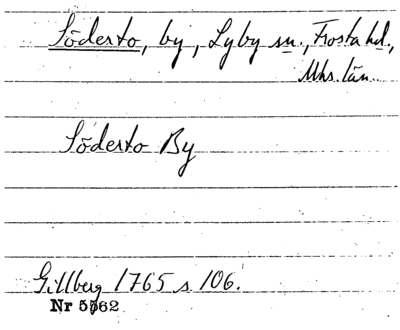 Söderto, by, Lyby sn., Frosta hd.,
Mhs. län.
Söderto By
Gillberg 1765 s. 106.
Nr 5762